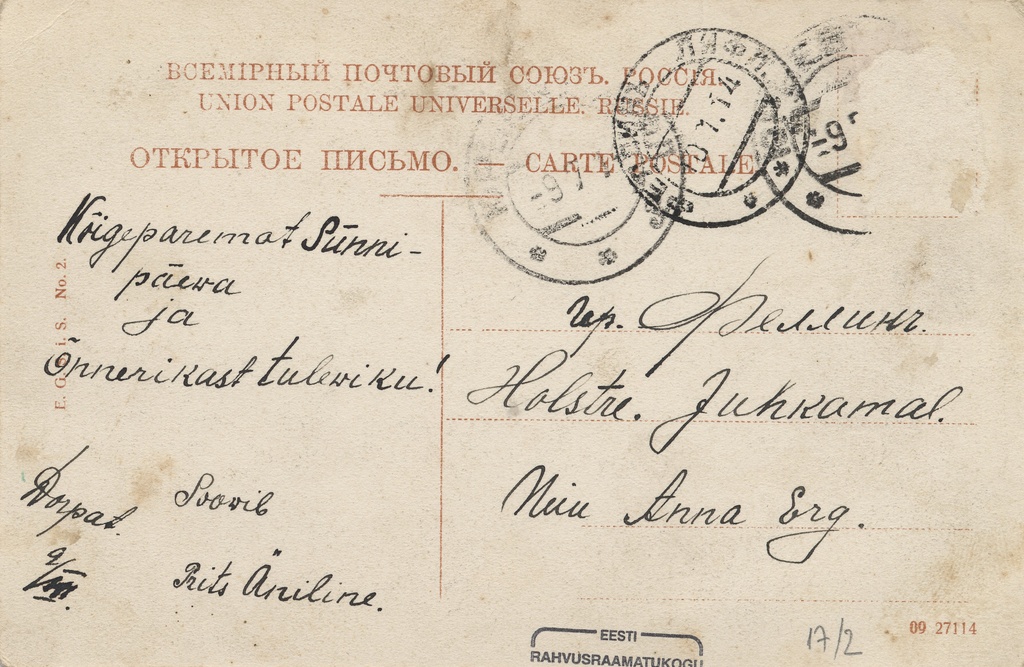 ВСЕМІРНЫЙ ПОЧТОВЫЙ СОЮЗЪ. РОССІЯ.
UNION POSTALE UNIVERSELLE. RUSSIE.
ОТКРЫТОЕ ПИСЬМО. — CARTE POSTALE
-9 1
01.14
-9
Kõigeparemat Sünni-
päewa
ja
Õnnerikast tulewiku!
Soowib
Dorpat.
Prits Äniline.
гор. Феллинъ.
Holstre. Juhkamal.
Neiu Anna Erg.
No. 2.
09 27114
17/2
EESTI
RAHVUSRAAMATUKOGU